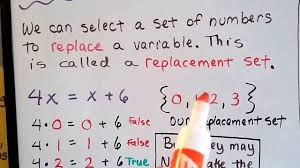 We can select a set of numbers
to replace a variable. This
is called a replacement set.
4x = x + 6 {0, 1, 2, 3}
4·0 = 0 + 6 False our replacement set
4·1 = 1 + 6 False B they may
4·2 = 2 + 6 True No the